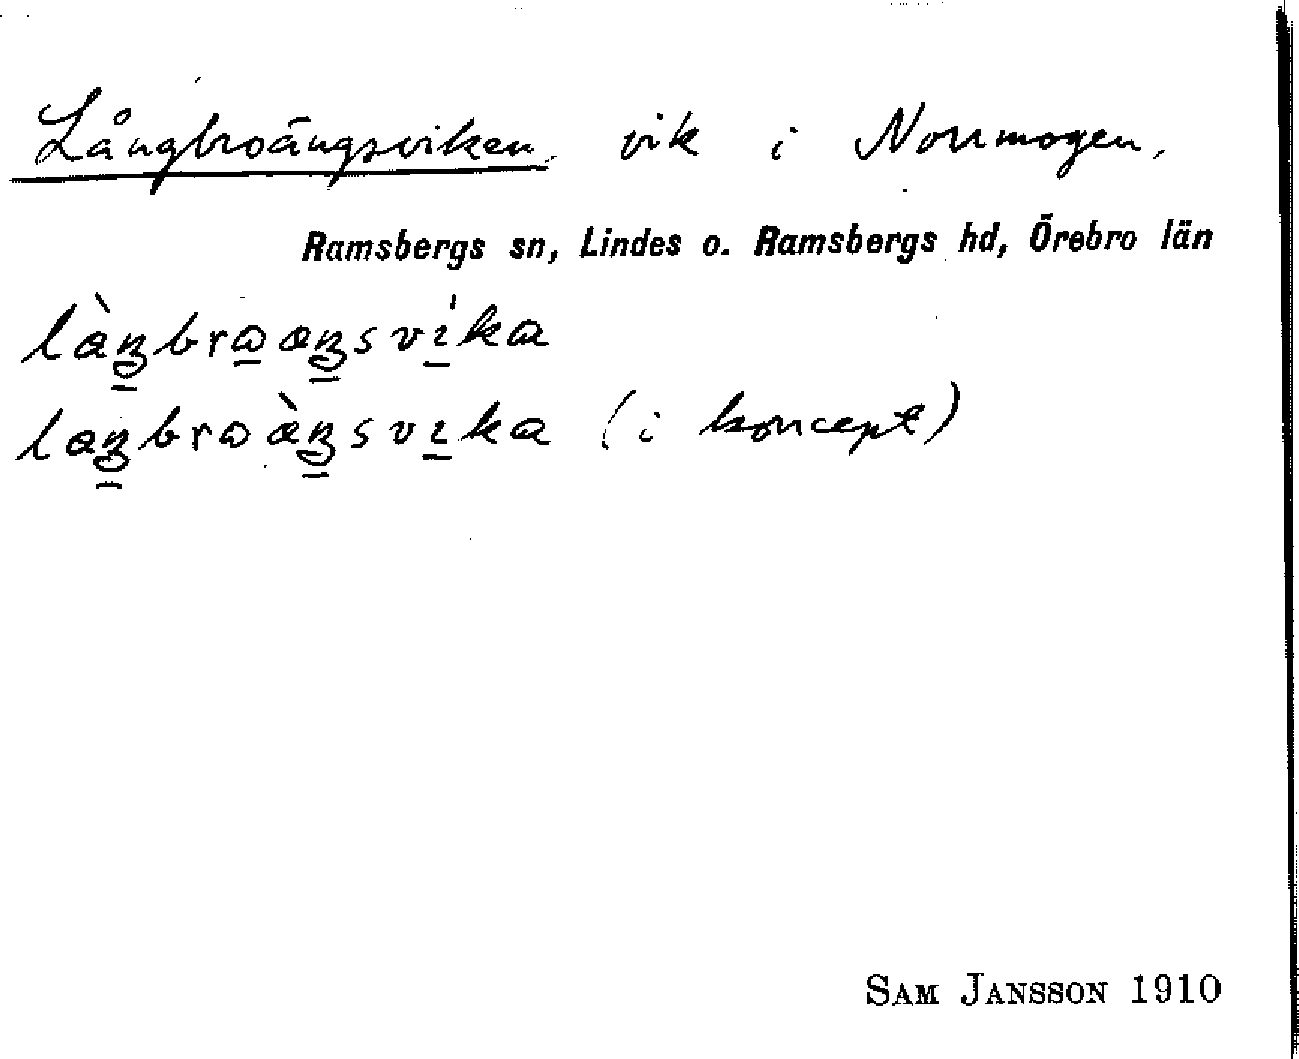 Långbroängsviken, vik i Norrmogen,
Ramsbergs sn, Lindes o. Ramsbergs hd, Örebro län
(i koncept)
SAM JANSSON 1910